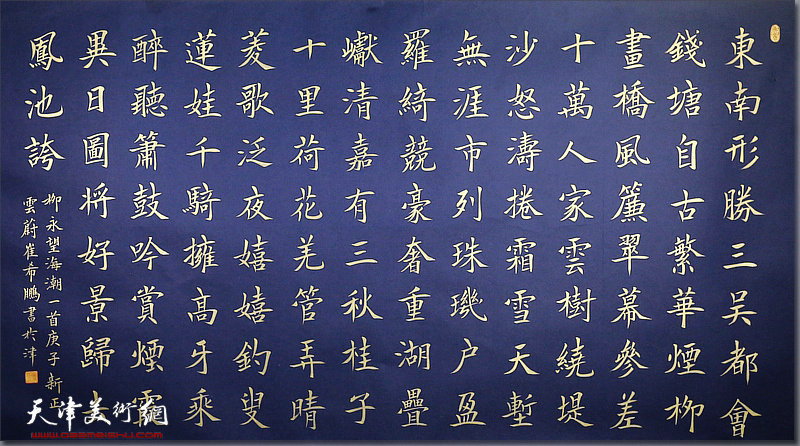 東南形勝三吴都會
錢塘自古繁華煙柳
畫橋風簾翠幕參差
十萬人家雲樹繞堤
沙怒濤捲霜雪天塹
無涯市列珠璣户盈
羅綺競豪奢重湖疊
巘清嘉有三秋桂子
十里荷花羌管弄晴
菱歌泛夜嬉嬉釣叟
蓮娃千騎擁高牙乘
醉聽簫鼓吟賞煙霞
異日圖將好景歸去
鳳池誇
柳永望海潮一首庚子新正
雲蔚崔希鵬書於津
天津美術網